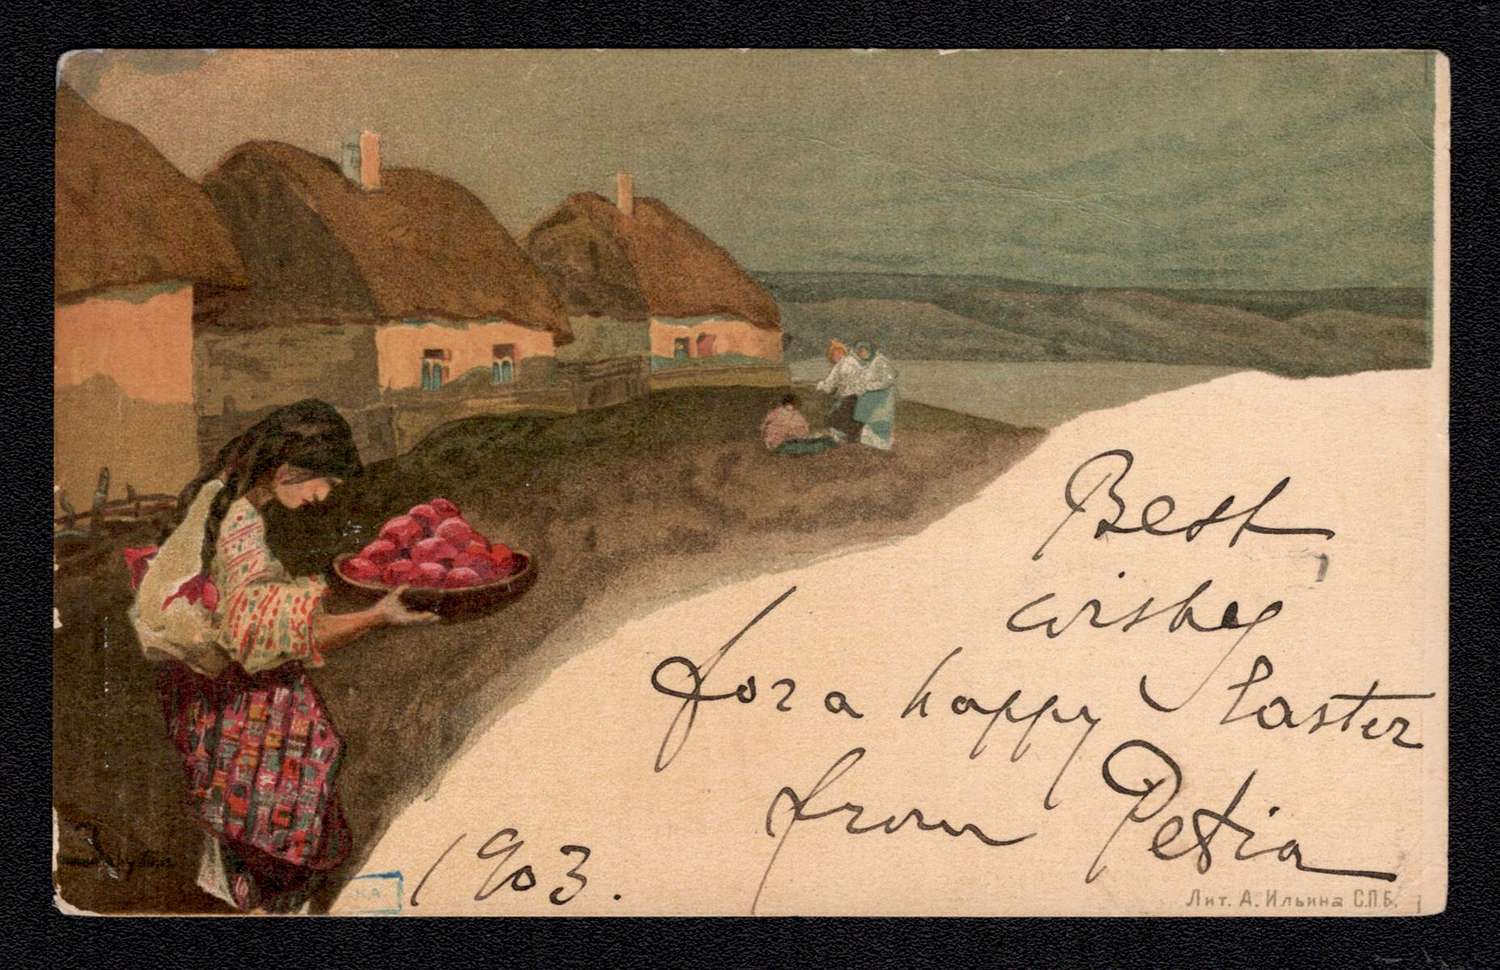 Best
wishes
for a happy Easter
from Petia
1903.
Лит. А. Ильина С.П.Б.
КА